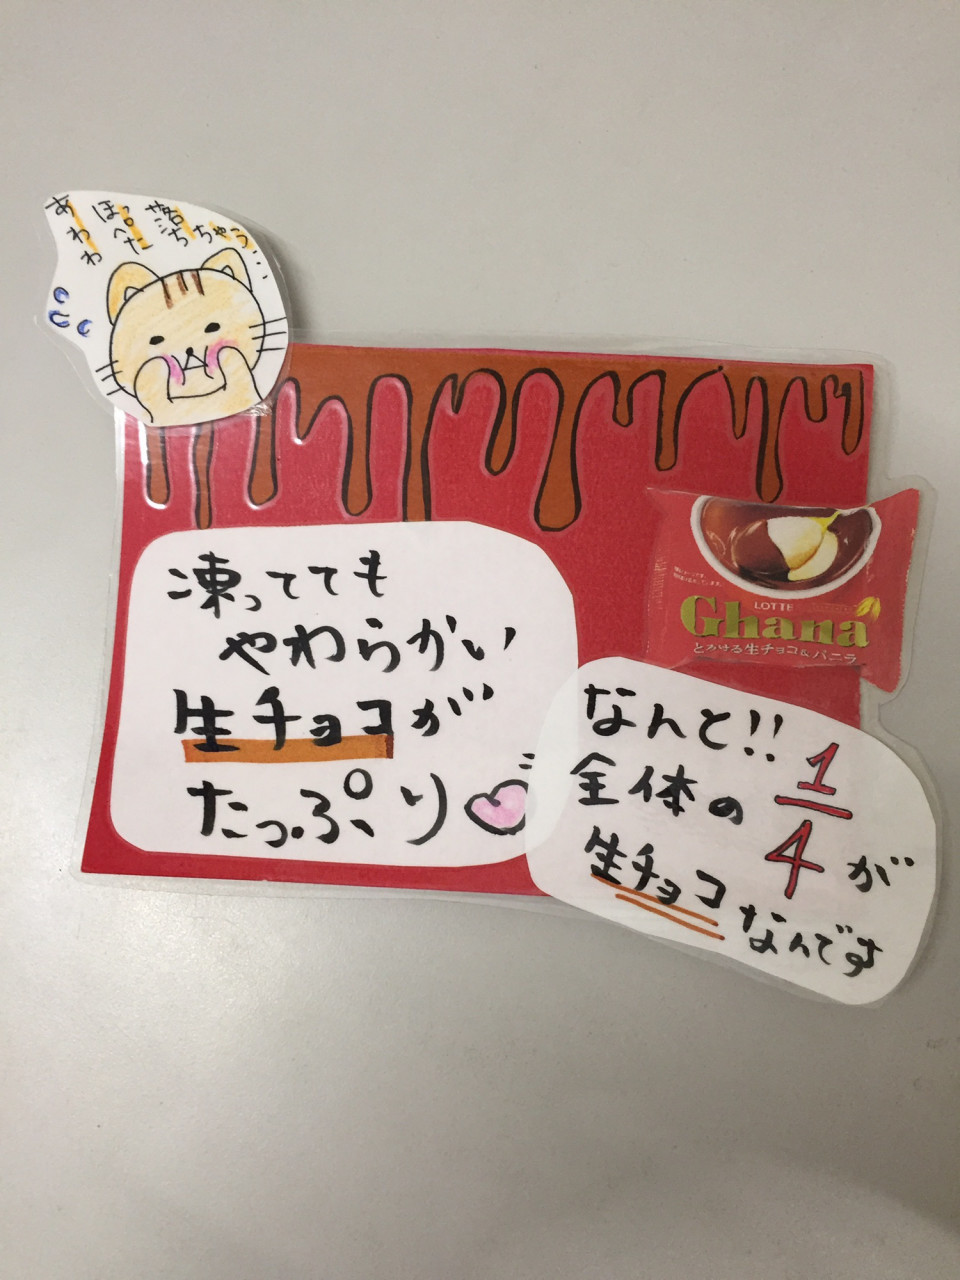 あわわ
ほっぺた
落ちちゃう...
凍ってても
やわらかい
生チョコが
たっぷり
LOTTE
Ghana
とろける生チョコ&バニラ
なんと!!
全体の1/4が
生チョコなんです